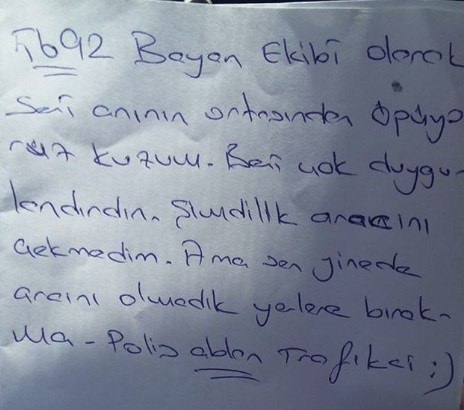 5692 Bayan Ekibi olarak
Seni anının ortasından öpüyo
ruz kuzum. Beni çok duygu-
landırdın. Şimdilik aracını
çekmedim. Ama sen yinede
aracını olmadık yerlere bırak-
ma - Polis ablan Trafikci :)